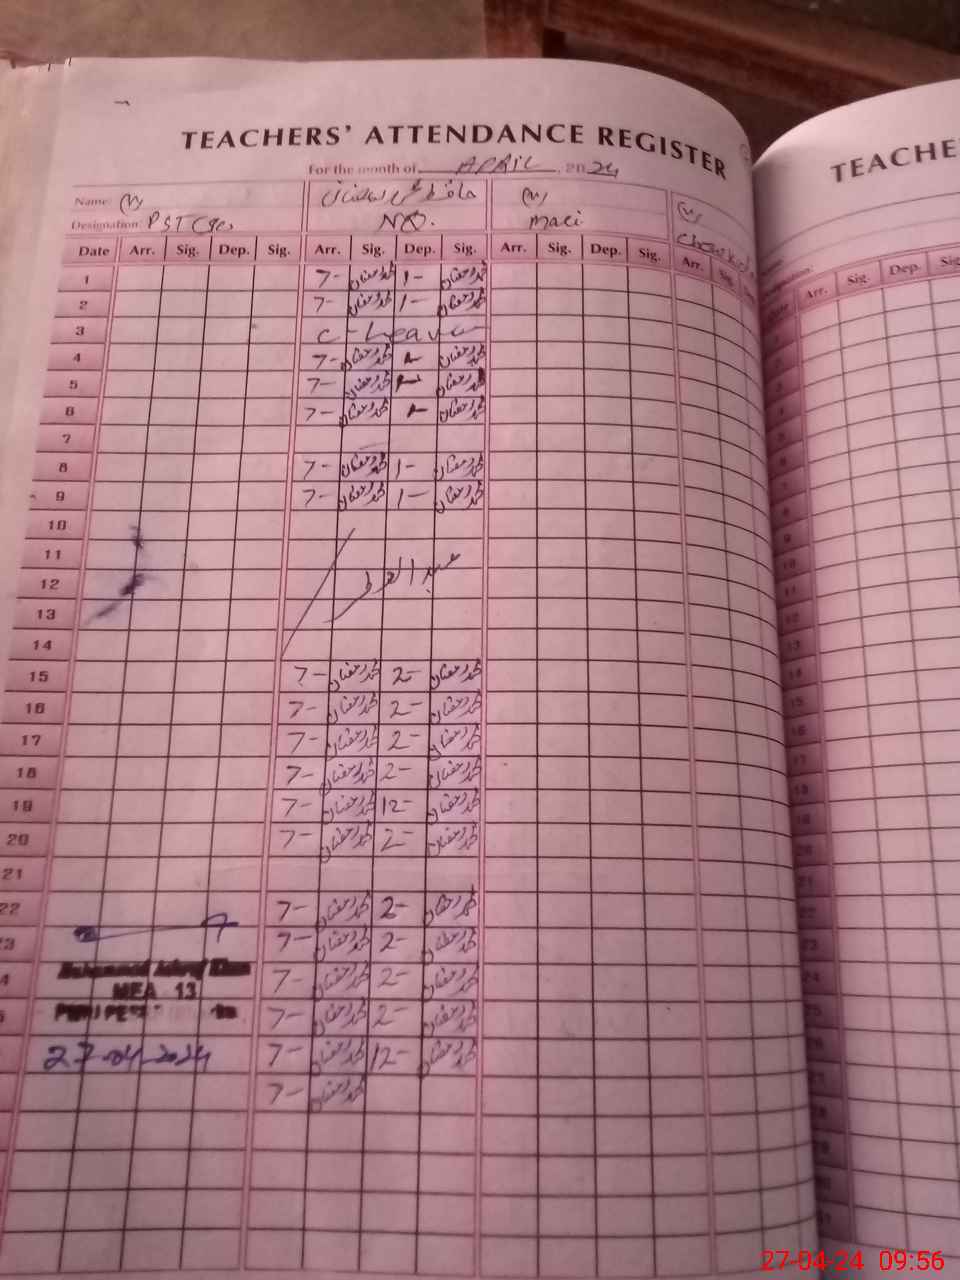 TEACHERS' ATTENDANCE REGISTER
For the month of APRIL, 2024
Name:
Designation: PST N.Q. Mali
Date Arr. Sig. Dep. Sig. Arr. Sig. Dep. Sig. Arr. Sig. Dep. Sig. Arr. Sig.
1 7- محمد رمضان 1- محمد رمضان
2 7- محمد رمضان 1- محمد رمضان
3 C-Leave
4 7- محمد رمضان محمد رمضان
5 7- محمد رمضان محمد رمضان
6 7- محمد رمضان محمد رمضان
7
8 7- محمد رمضان 1- محمد رمضان
9 7- محمد رمضان 1- محمد رمضان
10
11
12 عید الفطر
13
14
15 7- محمد رمضان 2- محمد رمضان
16 7- محمد رمضان 2- محمد رمضان
17 7- محمد رمضان 2- محمد رمضان
18 7- محمد رمضان 2- محمد رمضان
19 7- محمد رمضان 12- محمد رمضان
20 7- محمد رمضان 2- محمد رمضان
21
22 7- محمد رمضان 2- محمد رمضان
3 7- محمد رمضان 2- محمد رمضان
4 Muhammad Ashraf Khan 7- محمد رمضان 2- محمد رمضان
MEA 13
7- محمد رمضان 2- محمد رمضان
27-04-2024 7- محمد رمضان 12- محمد رمضان
7- محمد رمضان
TEACHE
Arr. Sig. Dep.
27-04-24 09:56